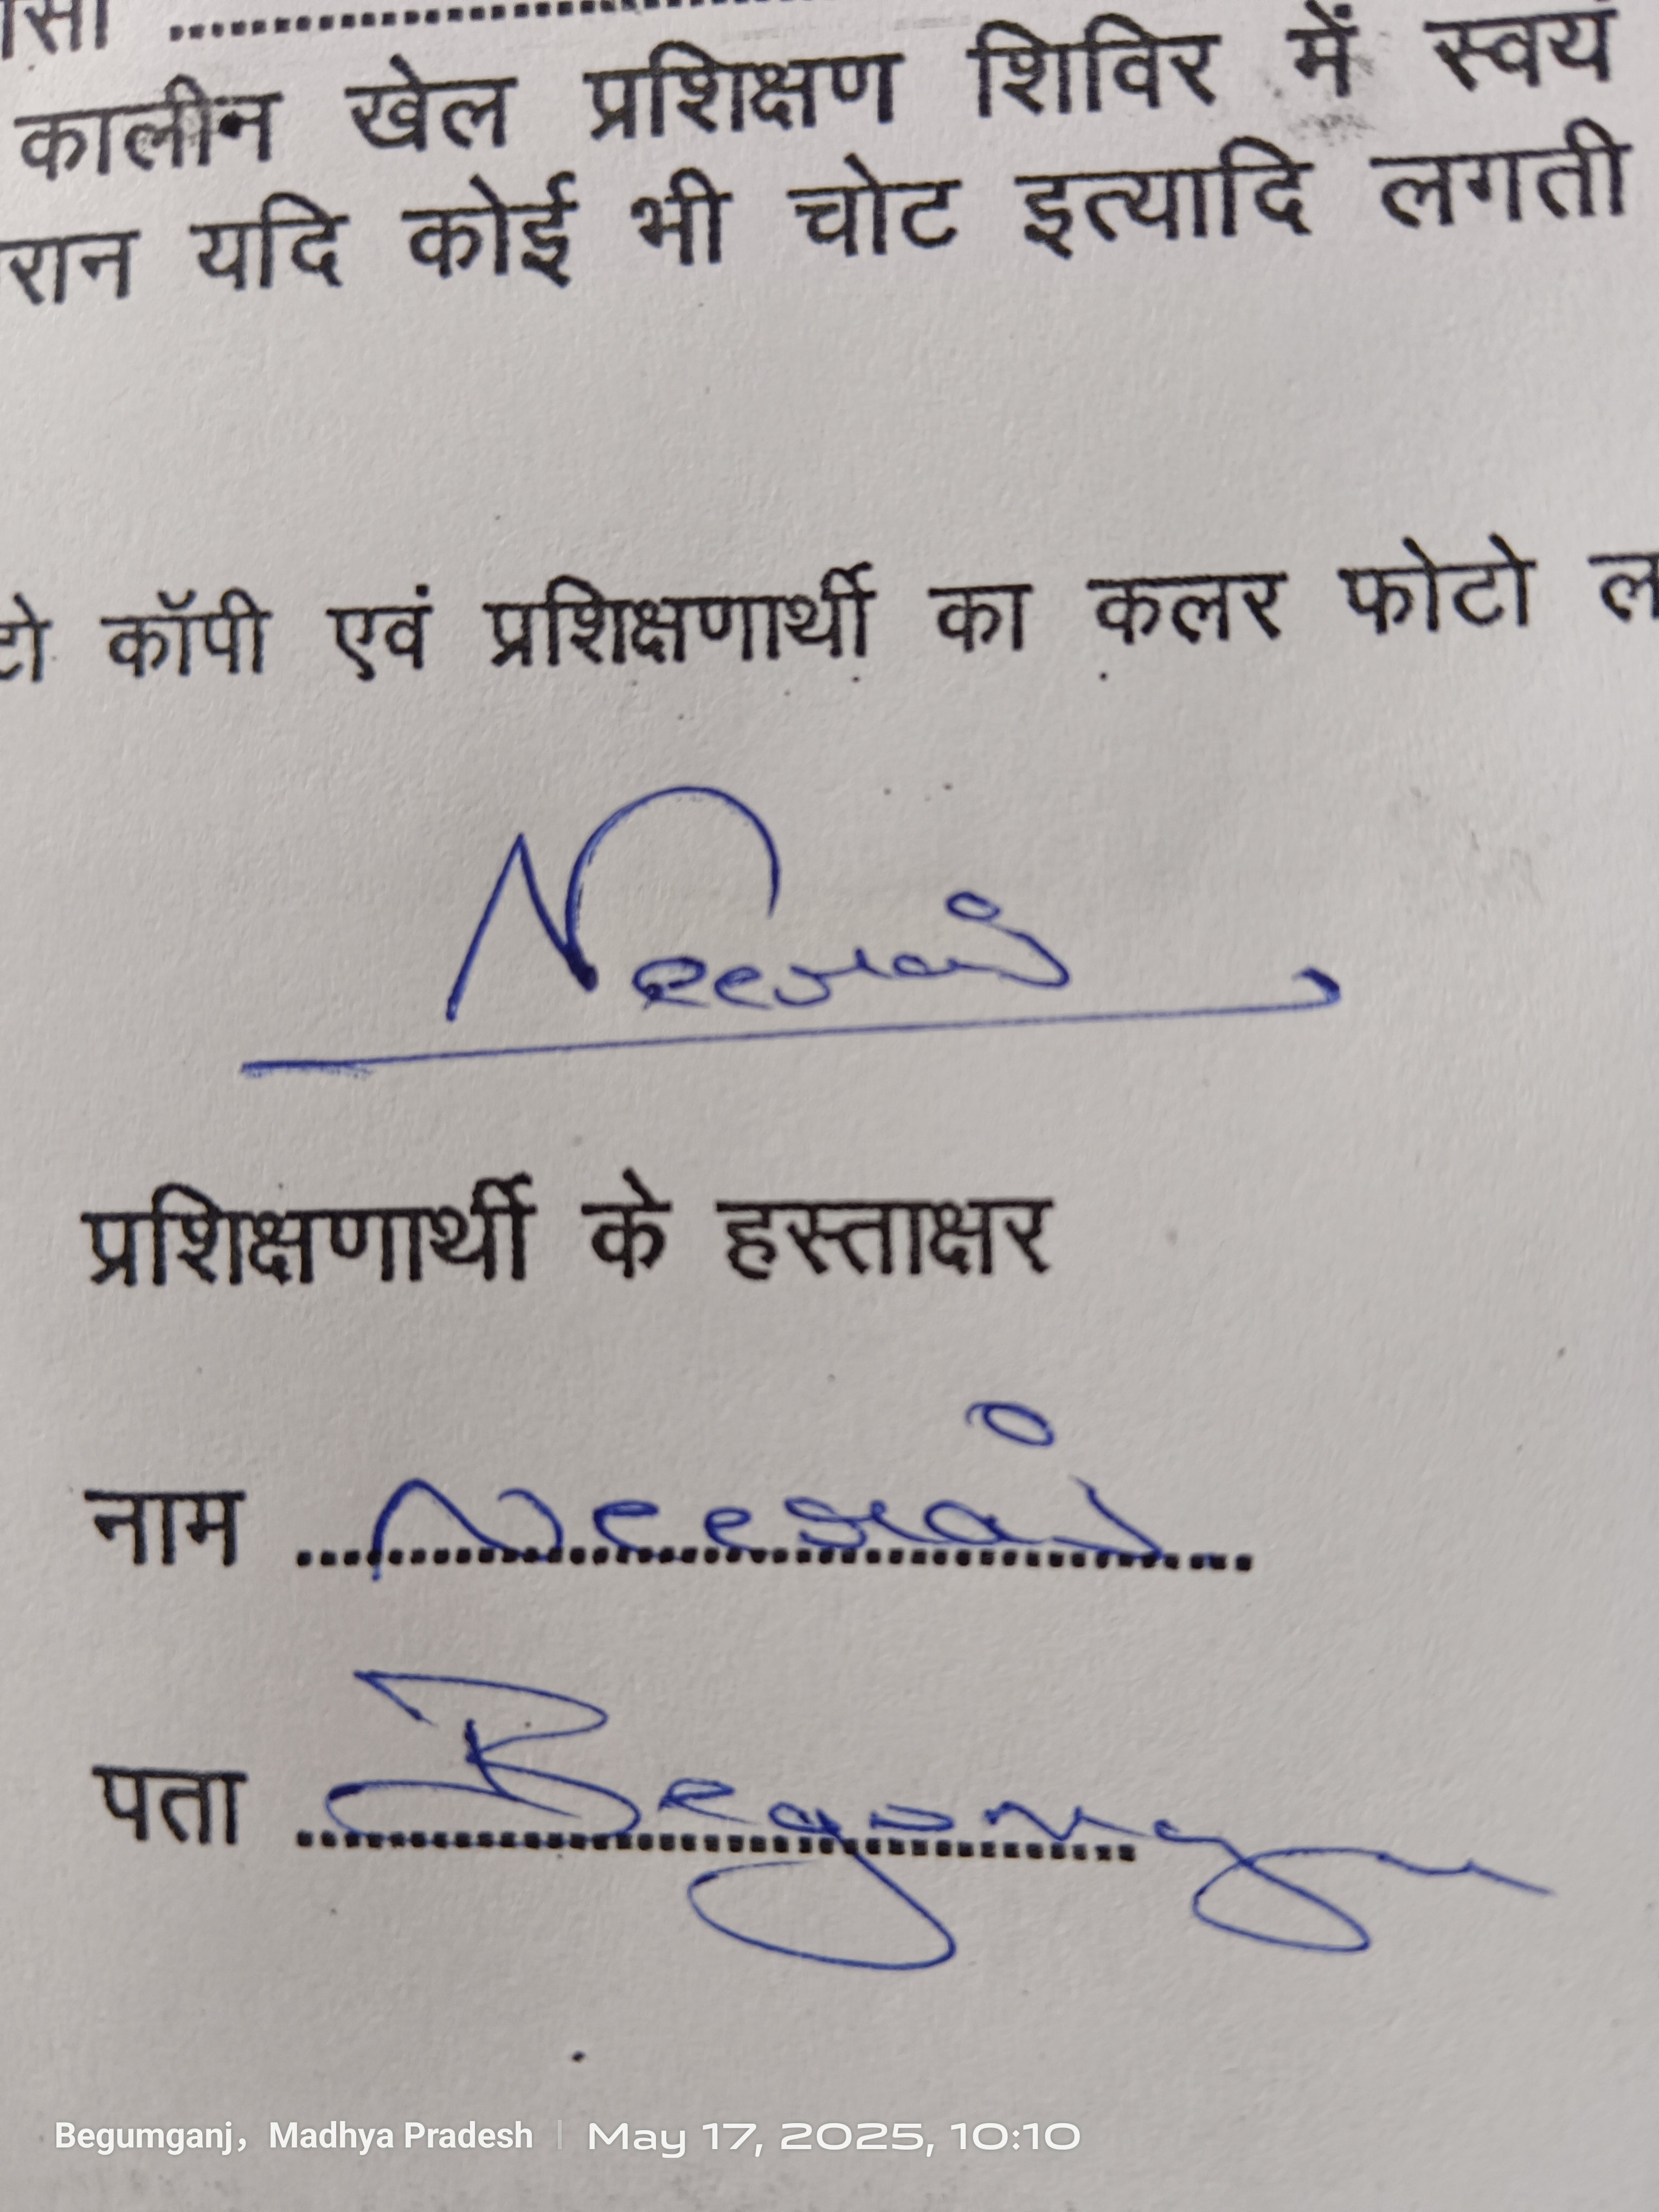 कालीन खेल प्रशिक्षण शिविर में स्वयं
रान यदि कोई भी चोट इत्यादि लगती
टो कॉपी एवं प्रशिक्षणार्थी का कलर फोटो ल
Neeraj
प्रशिक्षणार्थी के हस्ताक्षर
नाम Neeraj
पता
Begumganj, Madhya Pradesh | May 17, 2025, 10:10